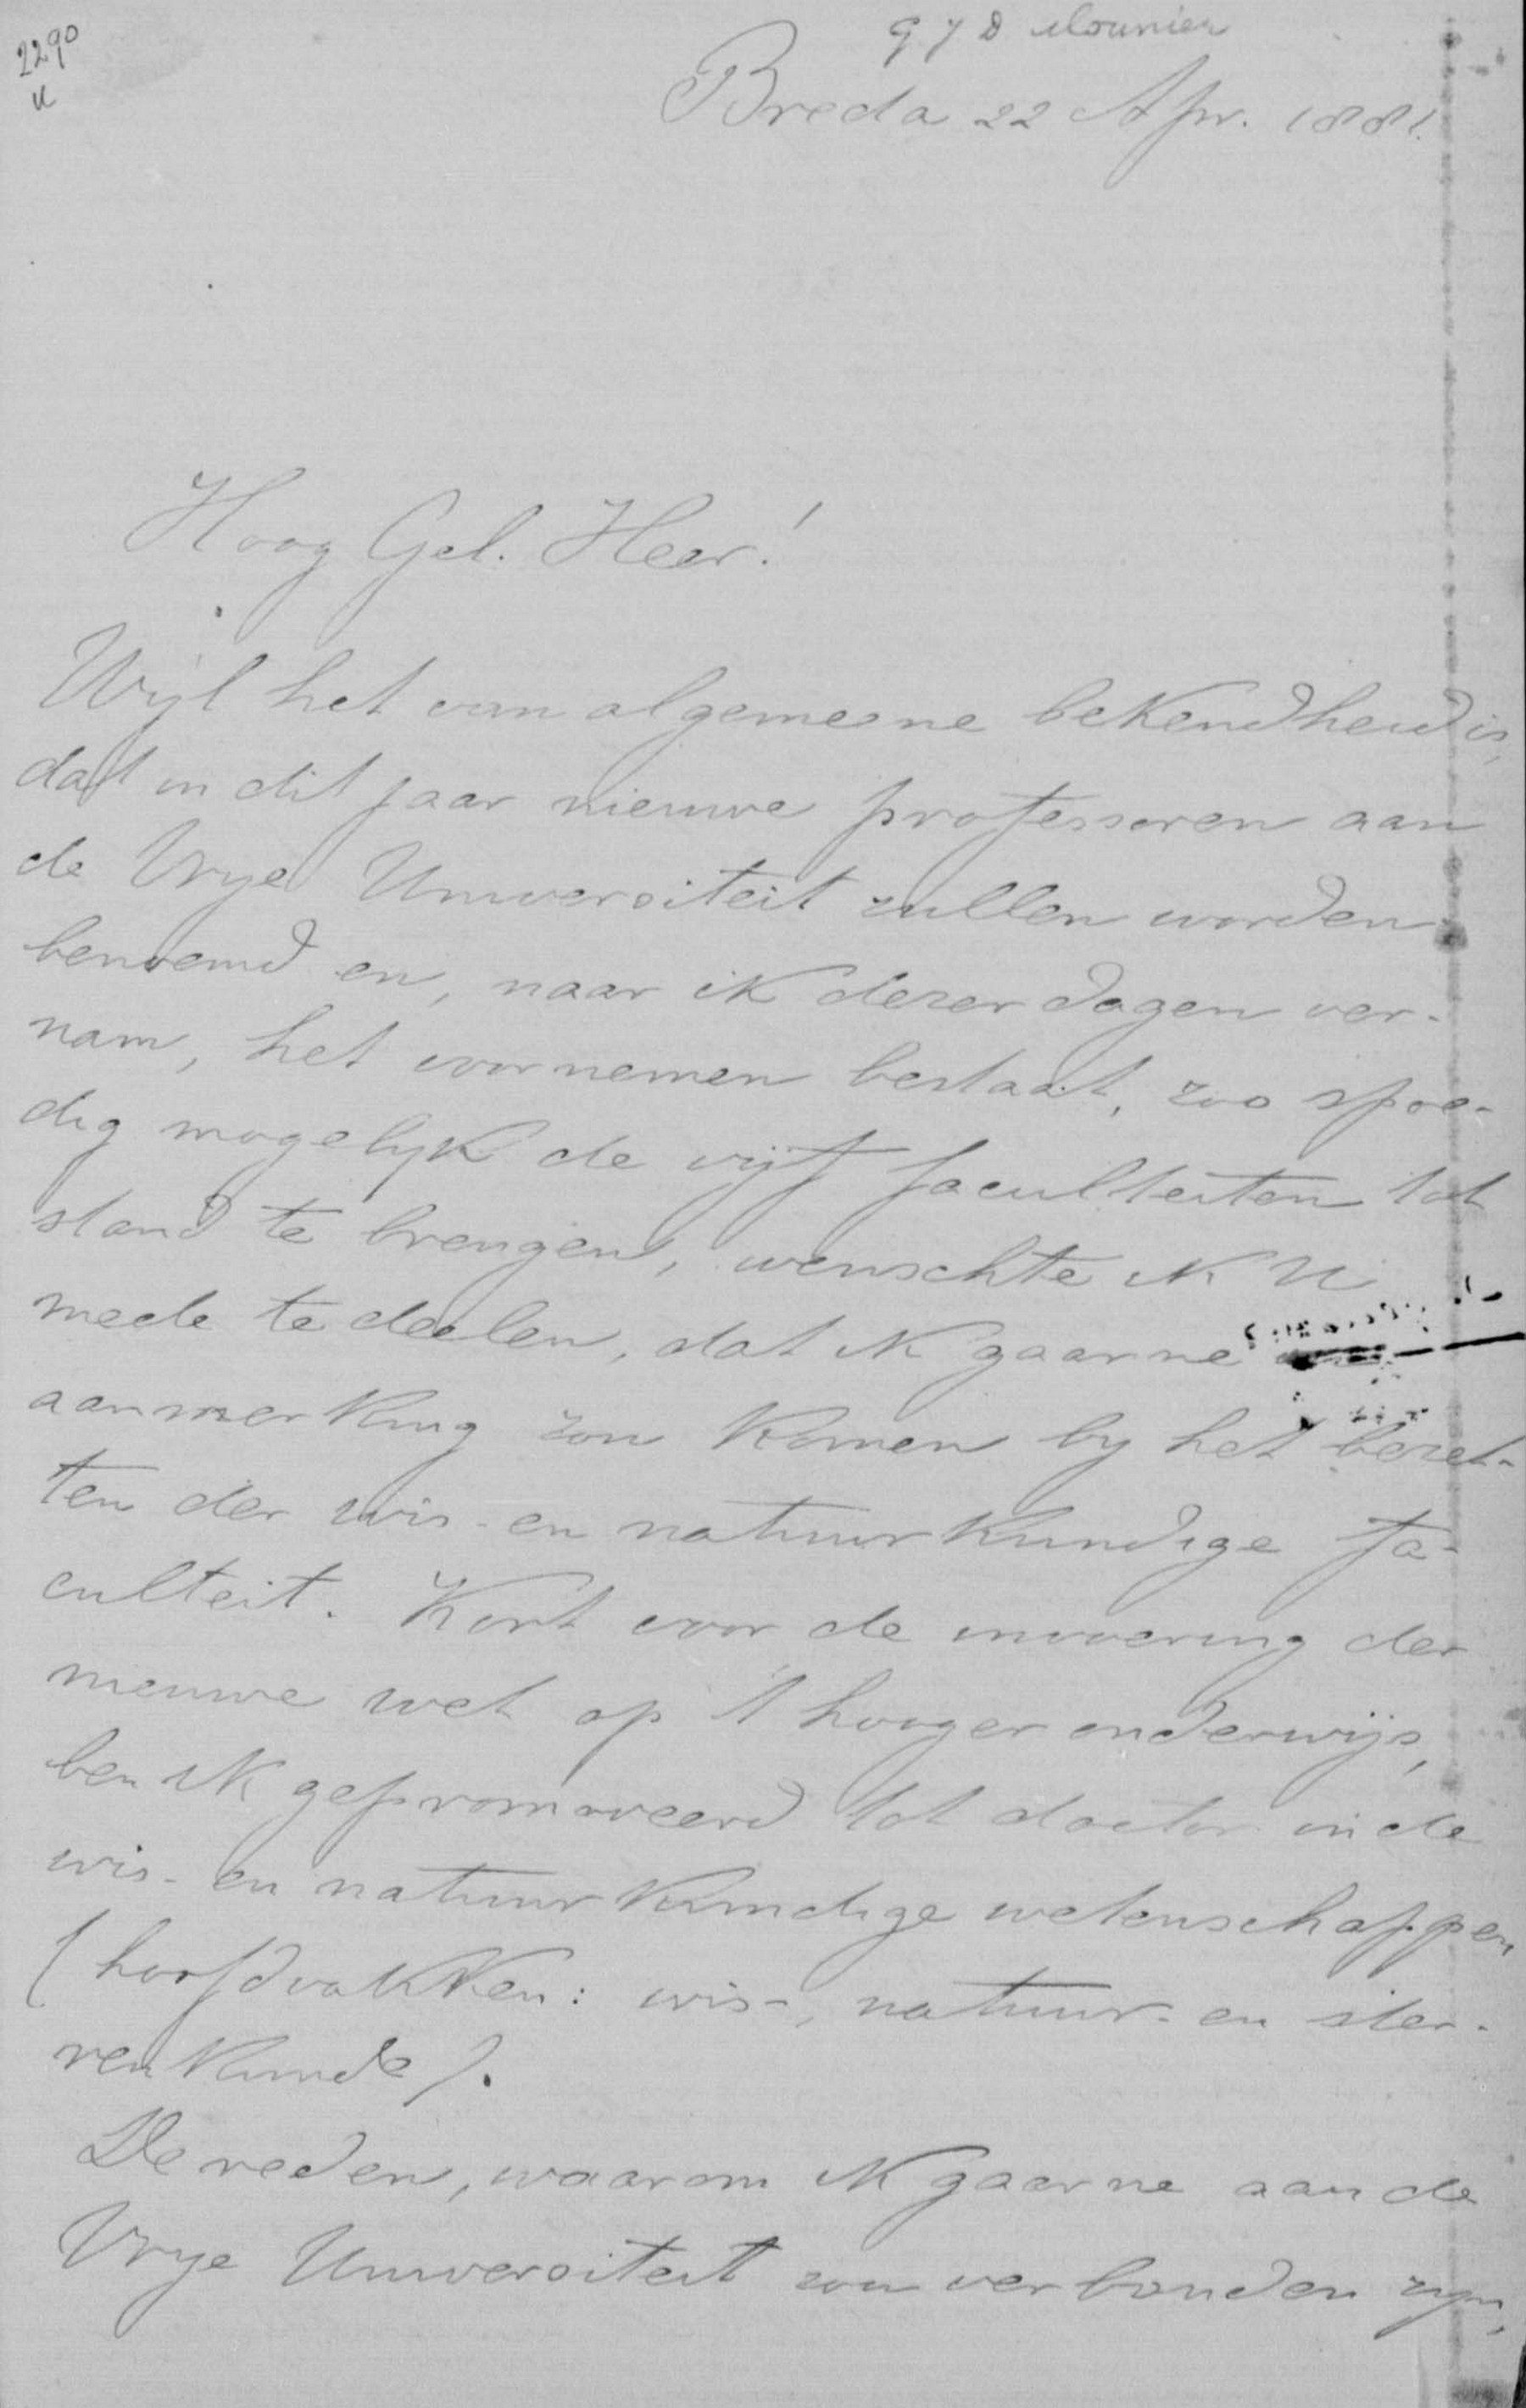 2290
u
G J D Mounier
Breda 22 Apr. 1881.
Hoog Gel. Heer!
Wijl het van algemeene bekendheid is,
dat in dit jaar nieuwe professoren aan
de Vrye Universiteit zullen worden
benoemd en, naar ik dezer dagen ver-
nam, het voornemen bestaat, zoo spoe-
dig mogelyk de vijf faculteiten tot
stand te brengen, wenschte ik U
mede te deelen, dat ik gaarne
aanmerking zou komen by het bezet-
ten der wis- en natuurkundige fa-
culteit. Kort voor de invoering der
nieuwe wet op 't hooger onderwijs,
ben ik gepromoveerd tot doctor in de
wis- en natuurkundige wetenschappen
(hoofdvakken: wis-, natuur- en ster-
renkunde).
De reden, waarom ik gaarne aan de
Vrye Universiteit zou verbonden zyn,